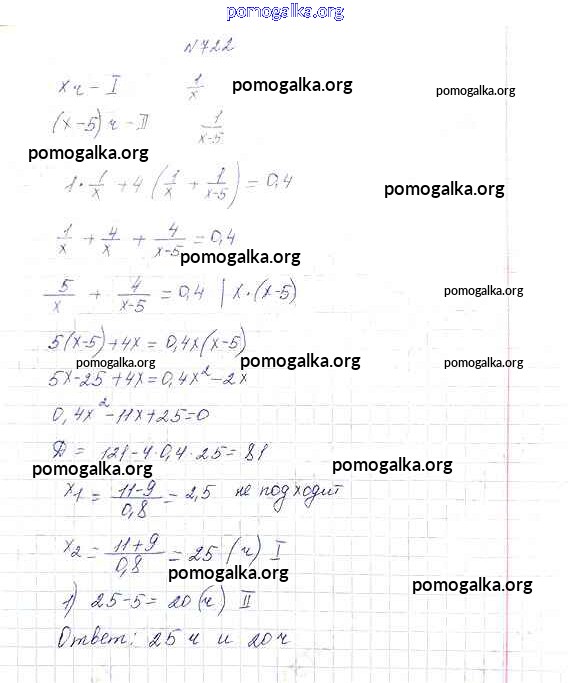 pomogalka.org
N722
x ч - I 1/x pomogalka.org pomogalka.org
(x-5) ч - II 1/(x-5)
pomogalka.org
1·1/x + 4(1/x + 1/(x-5)) = 0,4 pomogalka.org
1/x + 4/x + 4/(x-5) = 0,4
pomogalka.org
5/x + 4/(x-5) = 0,4 | x·(x-5) pomogalka.org
5(x-5)+4x = 0,4x(x-5)
pomogalka.org pomogalka.org pomogalka.org
5x-25+4x=0,4x²-2x
0,4x²-11x+25=0
Д = 121-4·0,4·25=81
pomogalka.org pomogalka.org
x₁ = (11-9)/0,8 = 2,5 не подходит
x₂ = (11+9)/0,8 = 25 (ч) I
pomogalka.org pomogalka.org
1) 25-5= 20(ч) II
Ответ: 25 ч и 20ч